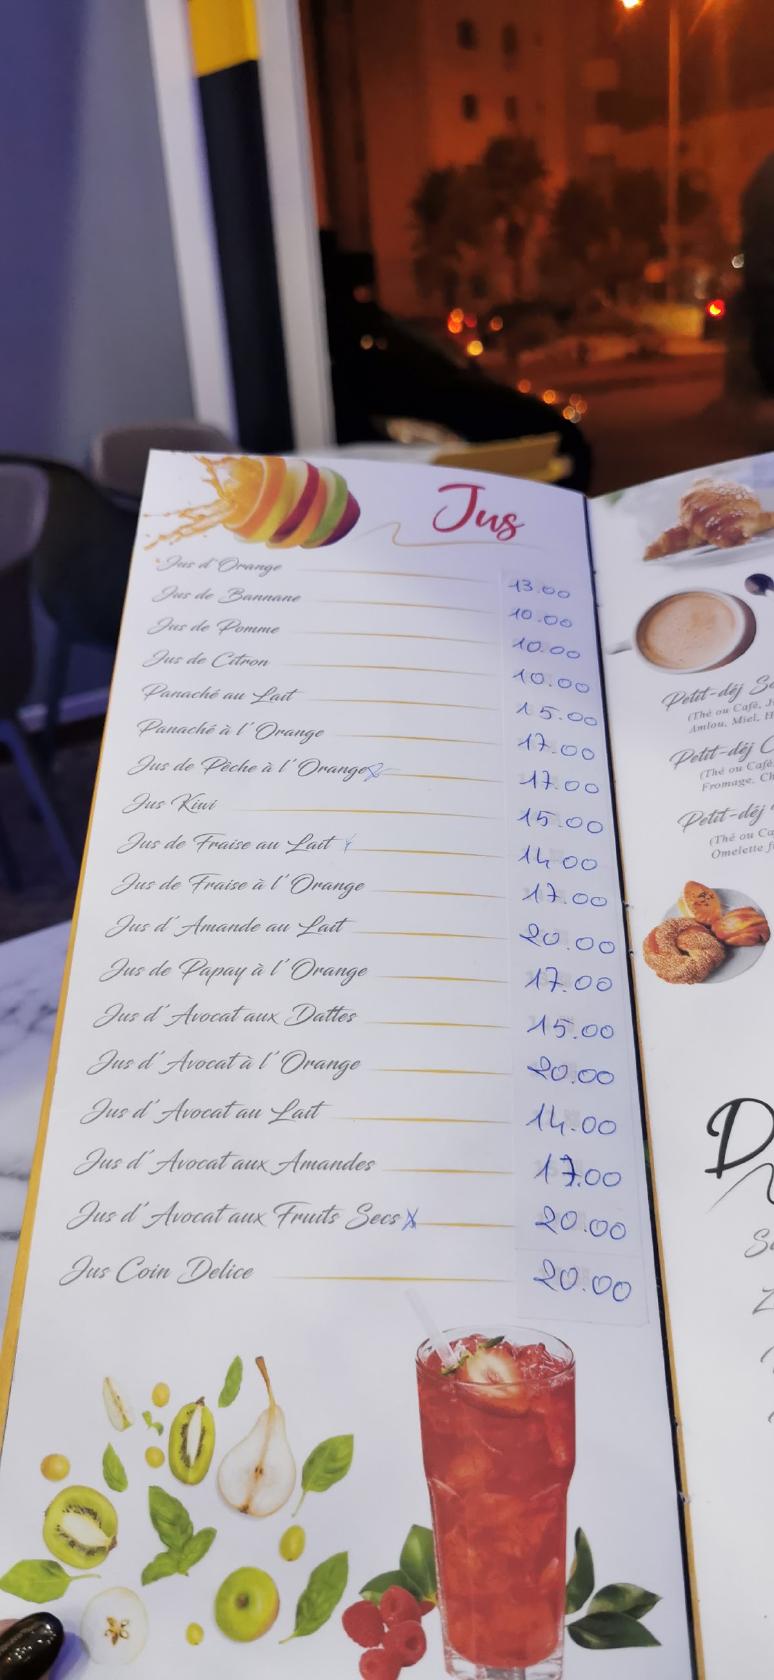 Jus
Jus d'Orange 13.00
Jus de Bannane 10.00
Jus de Pomme 10.00
Jus de Citron 10.00
Panaché au Lait 15.00
Panaché à l'Orange 17.00
Jus de Pêche à l'Orange 17.00
Jus Kiwi 15.00
Jus de Fraise au Lait 14.00
Jus de Fraise à l'Orange 17.00
Jus d'Amande au Lait 20.00
Jus de Papay à l'Orange 17.00
Jus d'Avocat aux Dattes 15.00
Jus d'Avocat à l'Orange 20.00
Jus d'Avocat au Lait 14.00
Jus d'Avocat aux Amandes 17.00
Jus d'Avocat aux Fruits Secs 20.00
Jus Coin Delice 20.00
Petit-déj
(Thé ou Café,
Amlou, Miel,
Petit-déj
(Thé ou Café
Fromage,
Petit-déj
(Thé ou
Omelette